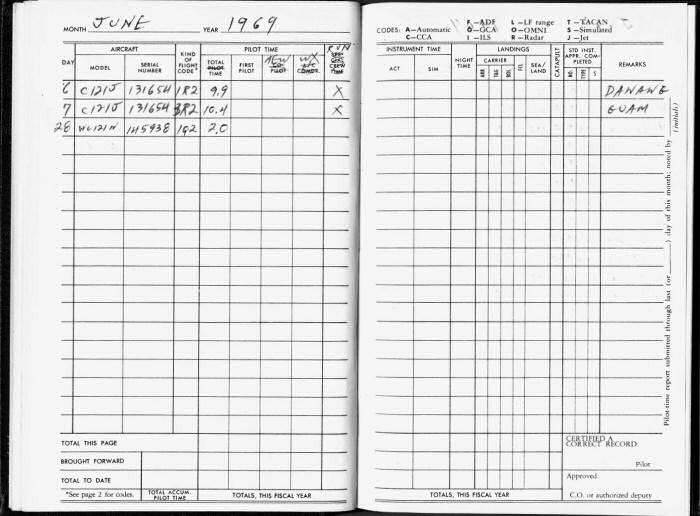 MONTH JUNE YEAR 1969
AIRCRAFT KIND OF FLIGHT CODE* PILOT TIME RUN
DAY MODEL SERIAL NUMBER TOTAL PILOT TIME FIRST PILOT NEW CO-PILOT WX A/C COMDR. SPE- CREW TIME
6 C121J 131654 1R2 9.9 X
7 C121J 131654 3R2 10.4 X
28 WC121N 145938 1Q2 2.0
TOTAL THIS PAGE
BROUGHT FORWARD
TOTAL TO DATE
*See page 2 for codes. TOTAL ACCUM. PILOT TIME TOTALS, THIS FISCAL YEAR
CODES: A—Automatic F—ADF L—LF range T—TACAN
G—GCA O—OMNI S—Simulated
C—CCA I—ILS R—Radar J—Jet
INSTRUMENT TIME NIGHT TIME LANDINGS CATAPULT STD INST. APPR. COM- PLETED REMARKS
ACT SIM CARRIER ARR T&G BOL FCL SEA/ LAND NO. TYPE S
DANANG
GUAM
Pilot-time report submitted through last (or ) day of this month; noted by (initials)
CERTIFIED A CORRECT RECORD:
Pilot
Approved:
TOTALS, THIS FISCAL YEAR C.O. or authorized deputy